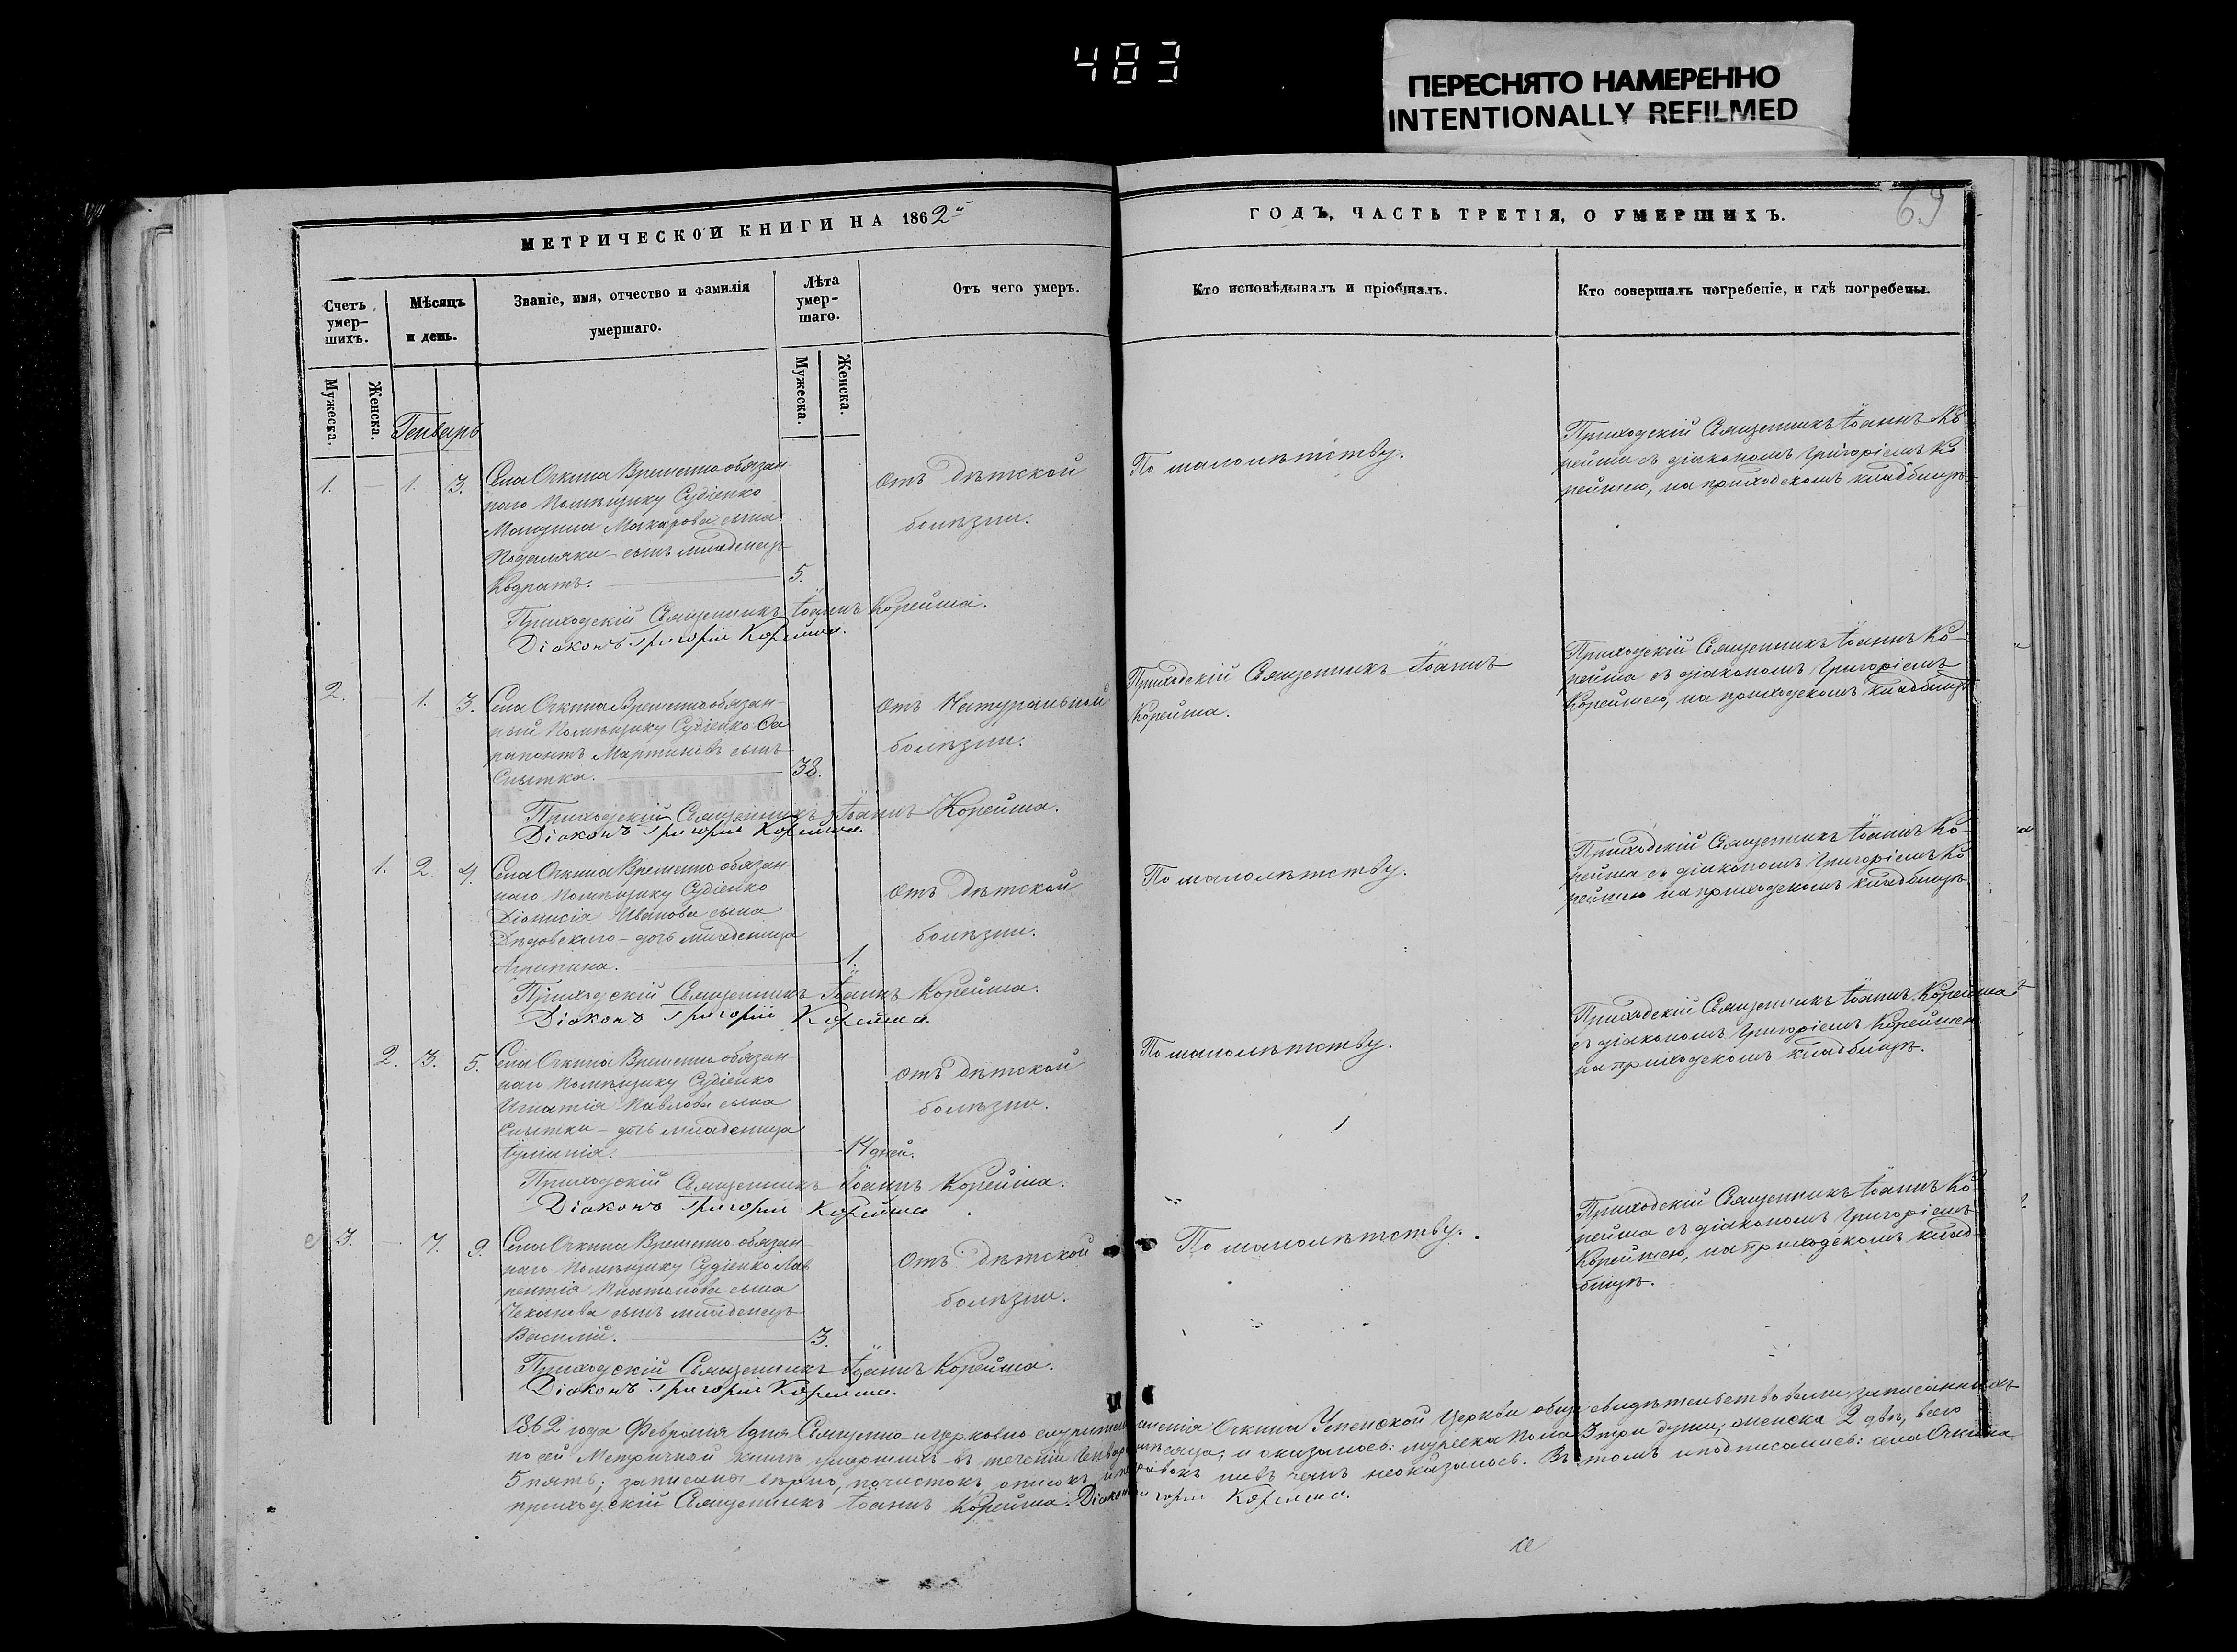 483
ПЕРЕСНЯТО НАМЕРЕННО
INTENTIONALLY REFILMED
МЕТРИЧЕСКОЙ КНИГИ НА 1862й
ГОДЪ, ЧАСТЬ ТРЕТІЯ, О УМЕРШИХЪ.
69
Счетъ умер-шихъ.
Мѣсяцъ и день.
Званіе, имя, отчество и фамилія умершаго.
Лѣта умер-шаго.
Отъ чего умеръ.
Кто исповѣдывалъ и пріобщалъ.
Кто совершалъ погребеніе, и гдѣ погребены.
Мужеска.
Женска.
Мужеска.
Женска.
Генварь
1. — 1. 3.
Села Очкина Временно обязан-
наго Помѣщику Судіенко
Макарова сына
сынъ младенецъ
Кодратъ. 5.
отъ дѣтской
болѣзни.
По малолѣтству.
Приходскій Священникъ Іоаннъ Ко-
рейша съ діакономъ Григоріемъ Ко
рейшею, на приходскомъ кладбищѣ
Приходскій Священникъ Іоаннъ Корейша.
Діаконъ Григорій Корейша.
2. — 1. 3.
Села Очкина Временно обязан-
ный Помѣщику Судіенко Ѳа
рапонтъ Мартиновъ сынъ
Снытка. 38.
отъ Натуральной
болѣзни.
Приходскій Священникъ Іоаннъ
Корейша.
Приходскій Священникъ Іоаннъ Ко-
рейша съ діакономъ Григоріемъ
Корейшею, на приходскомъ кладбищѣ
Приходскій Священникъ Іоаннъ Корейша.
Діаконъ Григорій Корейша.
1. 2. 4.
Села Очкина Временно обязан-
наго Помѣщику Судіенко
Діонисія Иванова сына
Дѣдовского – дочь младеница
Агрипина. 1.
отъ дѣтской
болѣзни.
По малолѣтству.
Приходскій Священникъ Іоаннъ Ко-
рейша съ діакономъ Григоріемъ Ко
рейшею на приходскомъ кладбищѣ
Приходскій Священникъ Іоаннъ Корейша.
Діаконъ Григорій Корейша.
2. 3. 5.
Села Очкина Временно обязан-
наго Помѣщику Судіенко
Игнатія Павлова сына
Снытки – дочь младеница
Іуліанія. 14 дней.
отъ дѣтской
болѣзни.
По малолѣтству.
Приходскій Священникъ Іоаннъ Корейша
съ діакономъ Григоріемъ Корейшею
на приходскомъ кладбищѣ.
Приходскій Священникъ Іоаннъ Корейша.
Діаконъ Григорій Корейша
3. — 7. 9.
Села Очкина Временно обязан
наго Помѣщику Судіенко Лав
рентія Платонова сына
Чеканова сынъ младенецъ
Василій. 3.
Отъ дѣтской
болѣзни.
По малолѣтству.
Приходскій Священникъ Іоаннъ Ко-
рейша съ діакономъ Григоріемъ
Корейшею, на приходскомъ клад-
бищѣ.
Приходскій Священникъ Іоаннъ Корейша.
Діаконъ Григорій Корейша.
1862 года Февраля 1 дня Священно и церковно служители Очкина Успенской Церкви обще свидѣтельствовали записанныхъ
по сей Метричной книгѣ умершихъ въ теченіи Генваря мѣсяца, и оказалось: мужеска пола 3 три души, женска 2 двѣ, всего
5 пять; записаны вѣрно, почистокъ, описокъ и поправокъ ни въ чемъ неоказалось. Въ томъ и подписались: села Очкина
приходскій Священникъ Іоаннъ Корейша. Діаконъ Григорій Корейша.